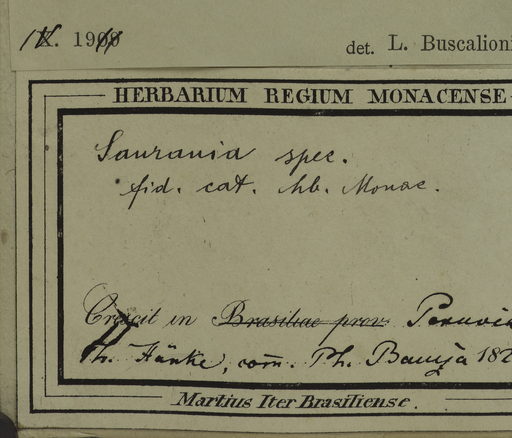 det. L. Buscalioni
HERBARIUM REGIUM MONACENSE
Saurania spec.
fid. cat. hb. Monac.
Crescit in Brasiliae prov. Peruvia
Th. Hänke, com.
Martius Iter Brasiliense.